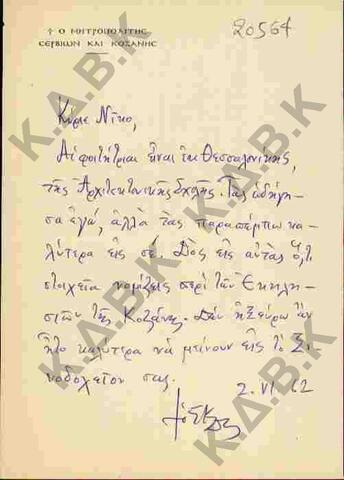 † Ο ΜΗΤΡΟΠΟΛΙΤΗΣ
ΣΕΡΒΙΩΝ ΚΑΙ ΚΟΖΑΝΗΣ
20564
Κύριε Νῖκο,
Αἱ φοιτήτριαι εἶναι ἐκ Θεσσαλονίκης,
τῆς Ἀρχιτεκτονικῆς Σχολῆς. Τὰς ὡδήγη-
σα ἐγώ, ἀλλὰ τὰς παραπέμπω κα-
λύτερα εἰς σέ. Δὸς εἰς αὐτὰς ὅ,τι
στοιχεῖα νομίζεις περὶ τῶν Ἐκκλη-
σιῶν τῆς Κοζάνης. Δὲν ἠξεύρω ἂν
ἦτο καλύτερα νὰ μείνουν εἰς τὸ Ξε-
νοδοχεῖον σας.
2. VI. 62
Κ.Δ.Β.Κ
Κ.Δ.Β.Κ
Κ.Δ.Β.Κ